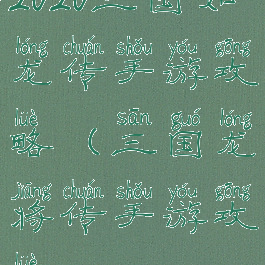 2020三国龙
lóng chuán shǒu yóu gōng
龙传手游攻
lüè sān guó lóng
略（三国龙
jiāng chuán shǒu yóu gōng
将传手游攻
lüè